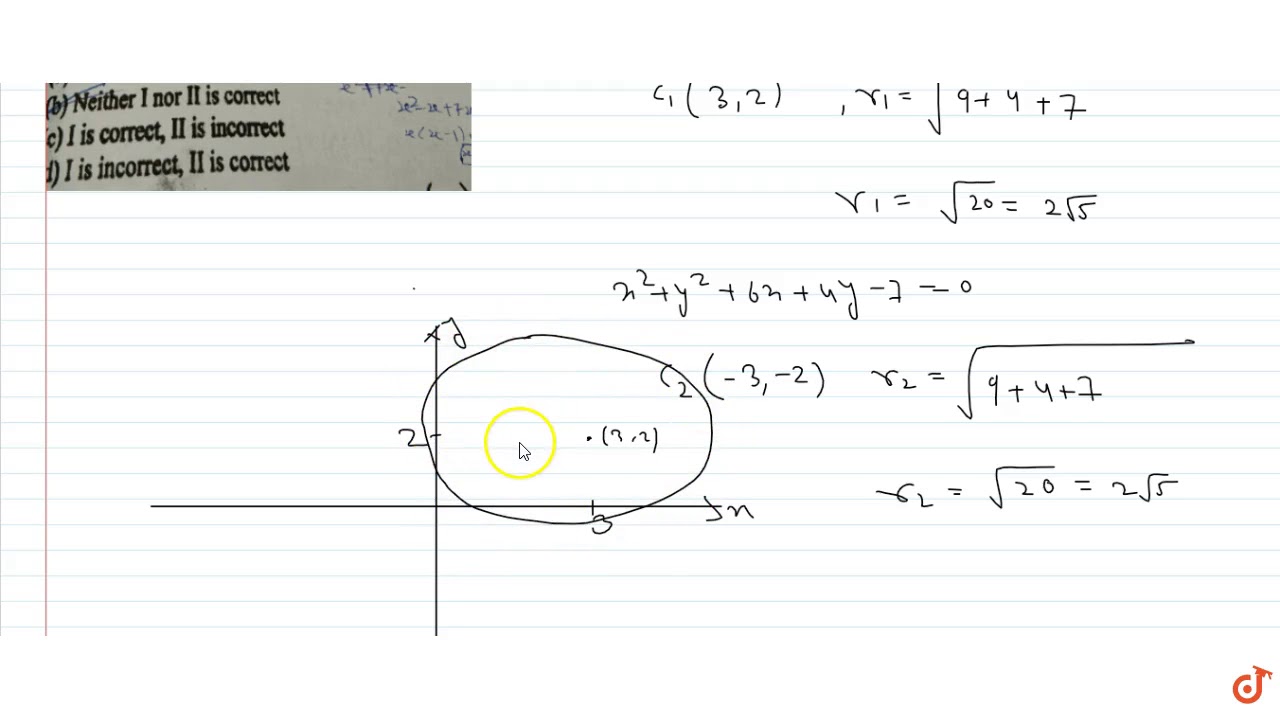 (b) Neither I nor II is correct
c) I is correct, II is incorrect
d) I is incorrect, II is correct
x²-x+7x
x(x-1)
C₁(3,2) , r₁ = √9+4+7
r₁ = √20 = 2√5
x²+y²+6x+4y-7=0
y
C₂(-3,-2) r₂ = √9+4+7
2
(3,2)
r₂ = √20 = 2√5
x
3